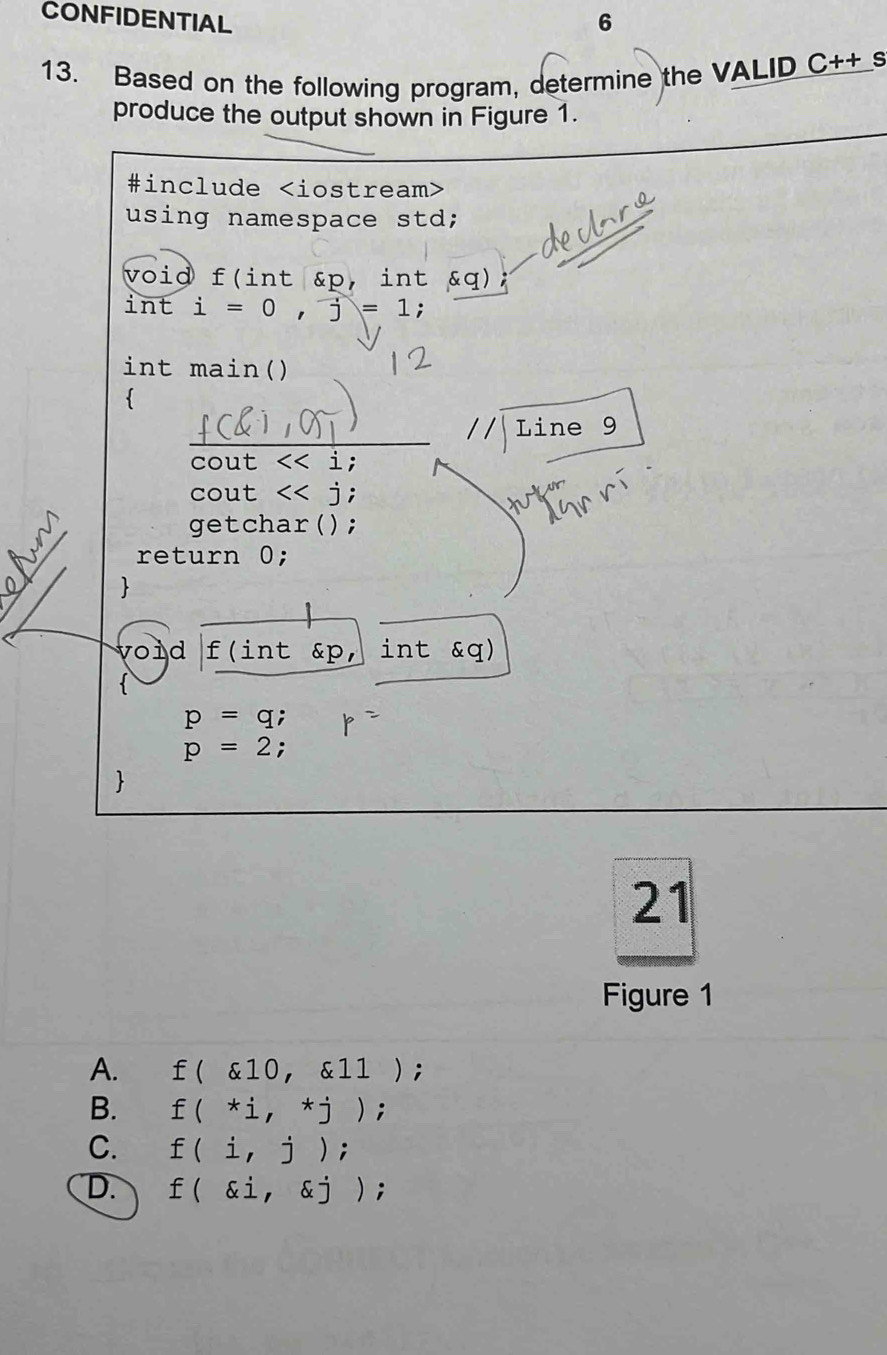 CONFIDENTIAL 6
13. Based on the following program, determine the VALID C++ s
produce the output shown in Figure 1.
#include <iostream>
using namespace std;
declare
void f(int &p, int &q);
int i = 0 , j = 1;
12
int main()
{
f(&i,
// Line 9
cout << i;
cout << j;
dari
getchar();
return 0;
}
void f(int &p, int &q)
{
p = q; p =
p = 2;
}
21
Figure 1
A. f( &10, &11 );
B. f( *i, *j );
C. f( i, j );
D. f( &i, &j );